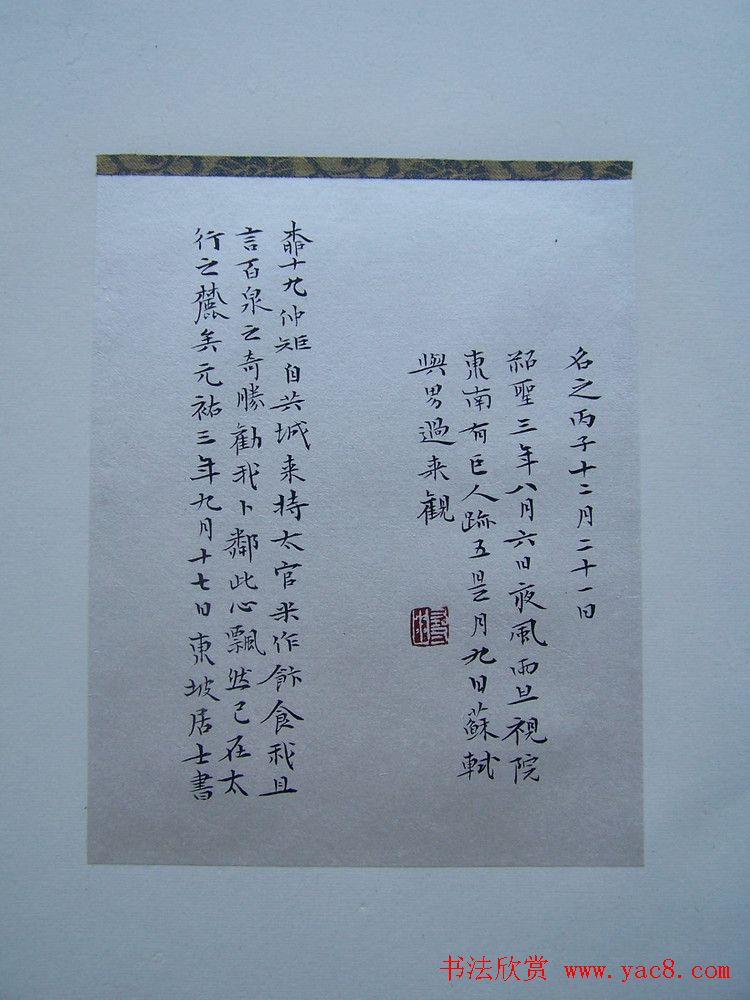 名之丙子十二月二十一日
紹聖三年八月六日夜風雨旦視院
東南有巨人跡五是月九日蘇軾
與男過来觀
柳十九仲矩自共城来持太官米作飰食我且
言百泉之奇勝勸我卜鄰此心飄然已在太
行之麓矣元祐三年九月十七日東坡居士書
书法欣赏 www.yac8.com